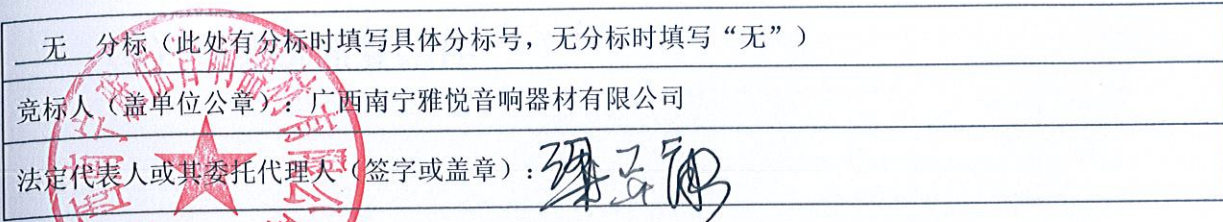 无 分标（此处有分标时填写具体分标号，无分标时填写“无”）
竞标人（盖单位公章）：广西南宁雅悦音响器材有限公司
法定代表人或其委托代理人（签字或盖章）：